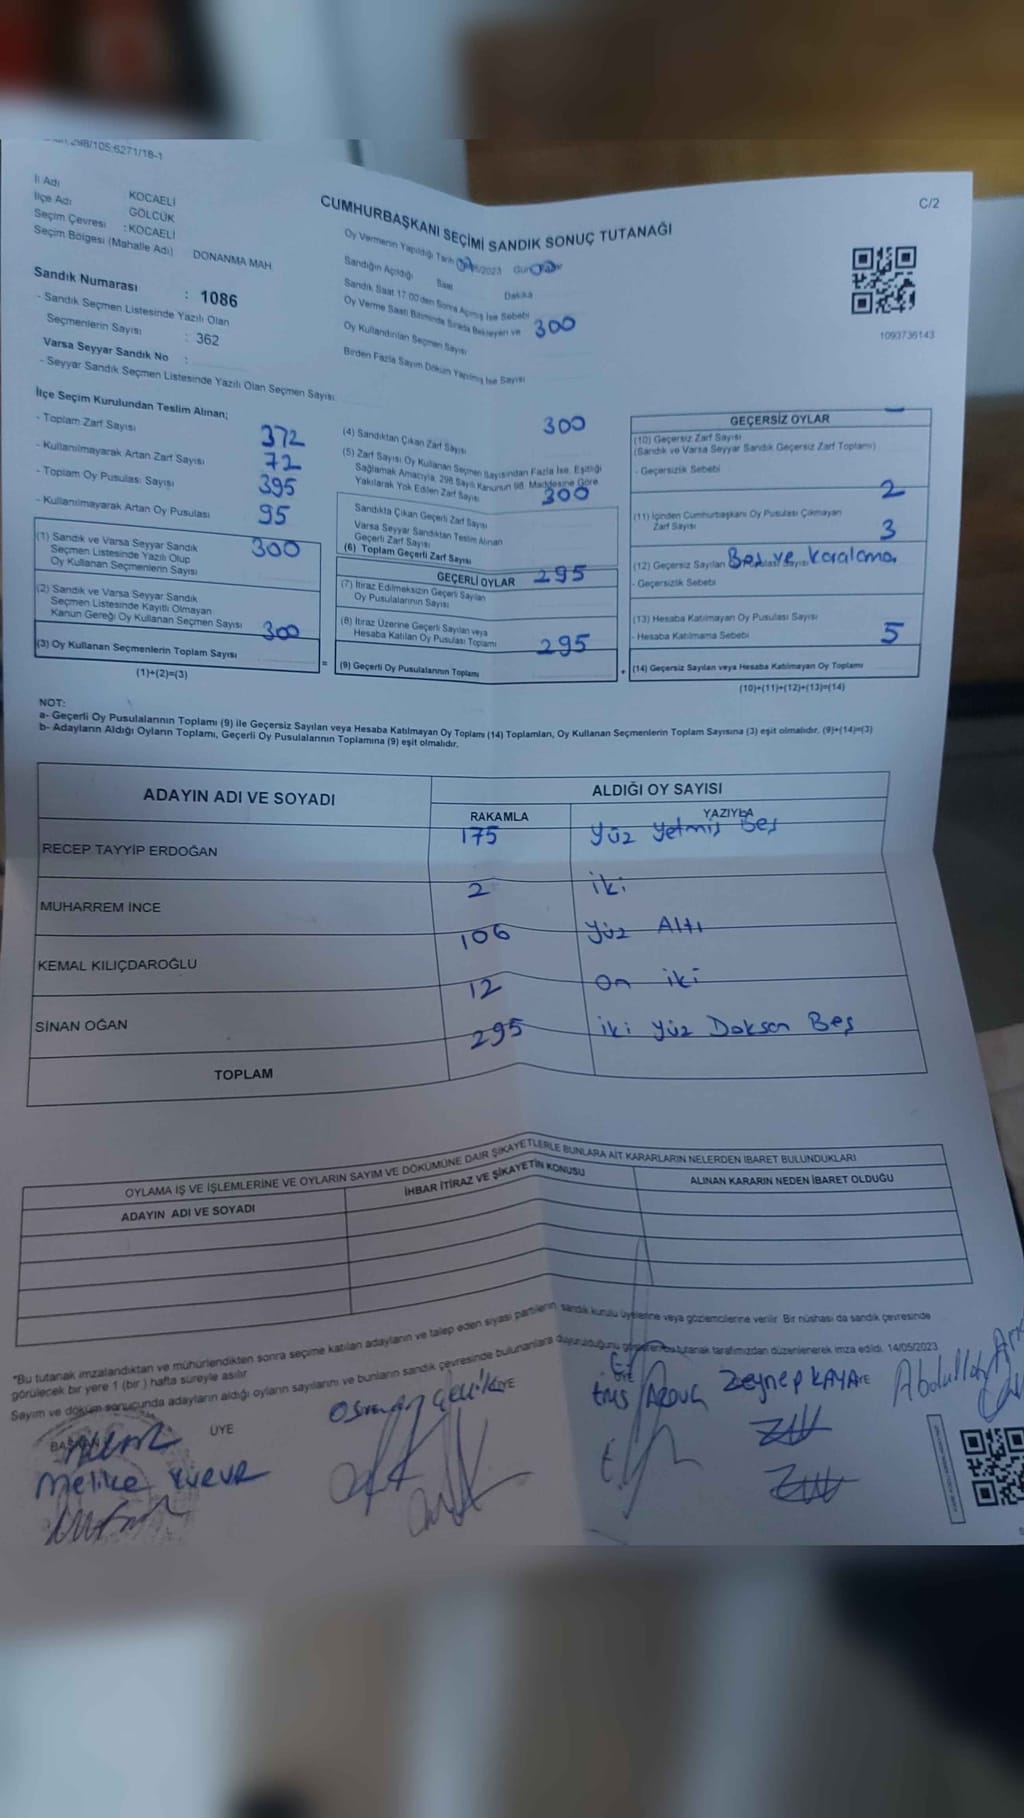 298/105:6271/18-1
C/2
İl Adı KOCAELİ
İlçe Adı GÖLCÜK
Seçim Çevresi : KOCAELİ
Seçim Bölgesi (Mahalle Adı) DONANMA MAH.
Sandık Numarası : 1086
- Sandık Seçmen Listesinde Yazılı Olan
Seçmenlerin Sayısı : 362
Varsa Seyyar Sandık No :
- Seyyar Sandık Seçmen Listesinde Yazılı Olan Seçmen Sayısı
CUMHURBAŞKANI SEÇİMİ SANDIK SONUÇ TUTANAĞI
Oy Vermenin Yapıldığı Tarih /2023 Gün
Sandığın Açıldığı Saat Dakika
Sandık Saat 17:00'den Sonra Açılmış İse Sebebi
Oy Verme Saati Bitiminde Sırada Bekleyen ve 300
Oy Kullandırılan Seçmen Sayısı
Birden Fazla Sayım Döküm Yapılmış İse Sayısı
1093736143
İlçe Seçim Kurulundan Teslim Alınan;
- Toplam Zarf Sayısı 372
- Kullanılmayarak Artan Zarf Sayısı 72
- Toplam Oy Pusulası Sayısı 395
- Kullanılmayarak Artan Oy Pusulası 95
(1) Sandık ve Varsa Seyyar Sandık 300
Seçmen Listesinde Yazılı Olup
Oy Kullanan Seçmenlerin Sayısı
(2) Sandık ve Varsa Seyyar Sandık
Seçmen Listesinde Kayıtlı Olmayan
Kanun Gereği Oy Kullanan Seçmen Sayısı 300
(3) Oy Kullanan Seçmenlerin Toplam Sayısı
(1)+(2)=(3)
=
(4) Sandıktan Çıkan Zarf Sayısı 300
(5) Zarf Sayısı Oy Kullanan Seçmen Sayısından Fazla İse, Eşitliği
Sağlamak Amacıyla, 298 Sayılı Kanunun 98. Maddesine Göre
Yakılarak Yok Edilen Zarf Sayısı 300
Sandıkta Çıkan Geçerli Zarf Sayısı
Varsa Seyyar Sandıktan Teslim Alınan
Geçerli Zarf Sayısı
(6) Toplam Geçerli Zarf Sayısı
GEÇERLİ OYLAR 295
(7) İtiraz Edilmeksizin Geçerli Sayılan
Oy Pusulalarının Sayısı
(8) İtiraz Üzerine Geçerli Sayılan veya
Hesaba Katılan Oy Pusulası Toplamı 295
(9) Geçerli Oy Pusulalarının Toplamı
+
GEÇERSİZ OYLAR
(10) Geçersiz Zarf Sayısı
(Sandık ve Varsa Seyyar Sandık Geçersiz Zarf Toplamı)
- Geçersizlik Sebebi
2
(11) İçinden Cumhurbaşkanı Oy Pusulası Çıkmayan
Zarf Sayısı 3
(12) Geçersiz Sayılan Oy Pusulası Sayısı Boş ve Karalama
- Geçersizlik Sebebi
(13) Hesaba Katılmayan Oy Pusulası Sayısı
- Hesaba Katılmama Sebebi 5
(14) Geçersiz Sayılan veya Hesaba Katılmayan Oy Toplamı
(10)+(11)+(12)+(13)=(14)
NOT:
a- Geçerli Oy Pusulalarının Toplamı (9) ile Geçersiz Sayılan veya Hesaba Katılmayan Oy Toplamı (14) Toplamları, Oy Kullanan Seçmenlerin Toplam Sayısına (3) eşit olmalıdır. (9)+(14)=(3)
b- Adayların Aldığı Oyların Toplamı, Geçerli Oy Pusulalarının Toplamına (9) eşit olmalıdır.
ADAYIN ADI VE SOYADI ALDIĞI OY SAYISI
RAKAMLA YAZIYLA
RECEP TAYYİP ERDOĞAN 175 Yüz Yetmiş Beş
MUHARREM İNCE 2 iki
KEMAL KILIÇDAROĞLU 106 Yüz Altı
SİNAN OĞAN 12 On iki
TOPLAM 295 iki yüz Doksan Beş
OYLAMA İŞ VE İŞLEMLERİNE VE OYLARIN SAYIM VE DÖKÜMÜNE DAİR ŞİKAYETLERLE BUNLARA AİT KARARLARIN NELERDEN İBARET BULUNDUKLARI
ADAYIN ADI VE SOYADI İHBAR İTİRAZ VE ŞİKAYETİN KONUSU ALINAN KARARIN NEDEN İBARET OLDUĞU
"Bu tutanak imzalandıktan ve mühürlendikten sonra seçime katılan adayların ve talep eden siyasi partilerin sandık kurulu üyelerine veya gözlemcilerine verilir. Bir nüshası da sandık çevresinde
görülecek bir yere 1 (bir) hafta süreyle asılır.
Sayım ve döküm sonucunda adayların aldığı oyların sayılarını ve bunların sandık çevresinde bulunanlara duyurulduğunu gösteren bu tutanak tarafımızdan düzenlenerek imza edildi. 14/05/2023
BAŞKAN ÜYE ÜYE ÜYE
Melike Osman Çelik Zeynep KAYA Abdullah